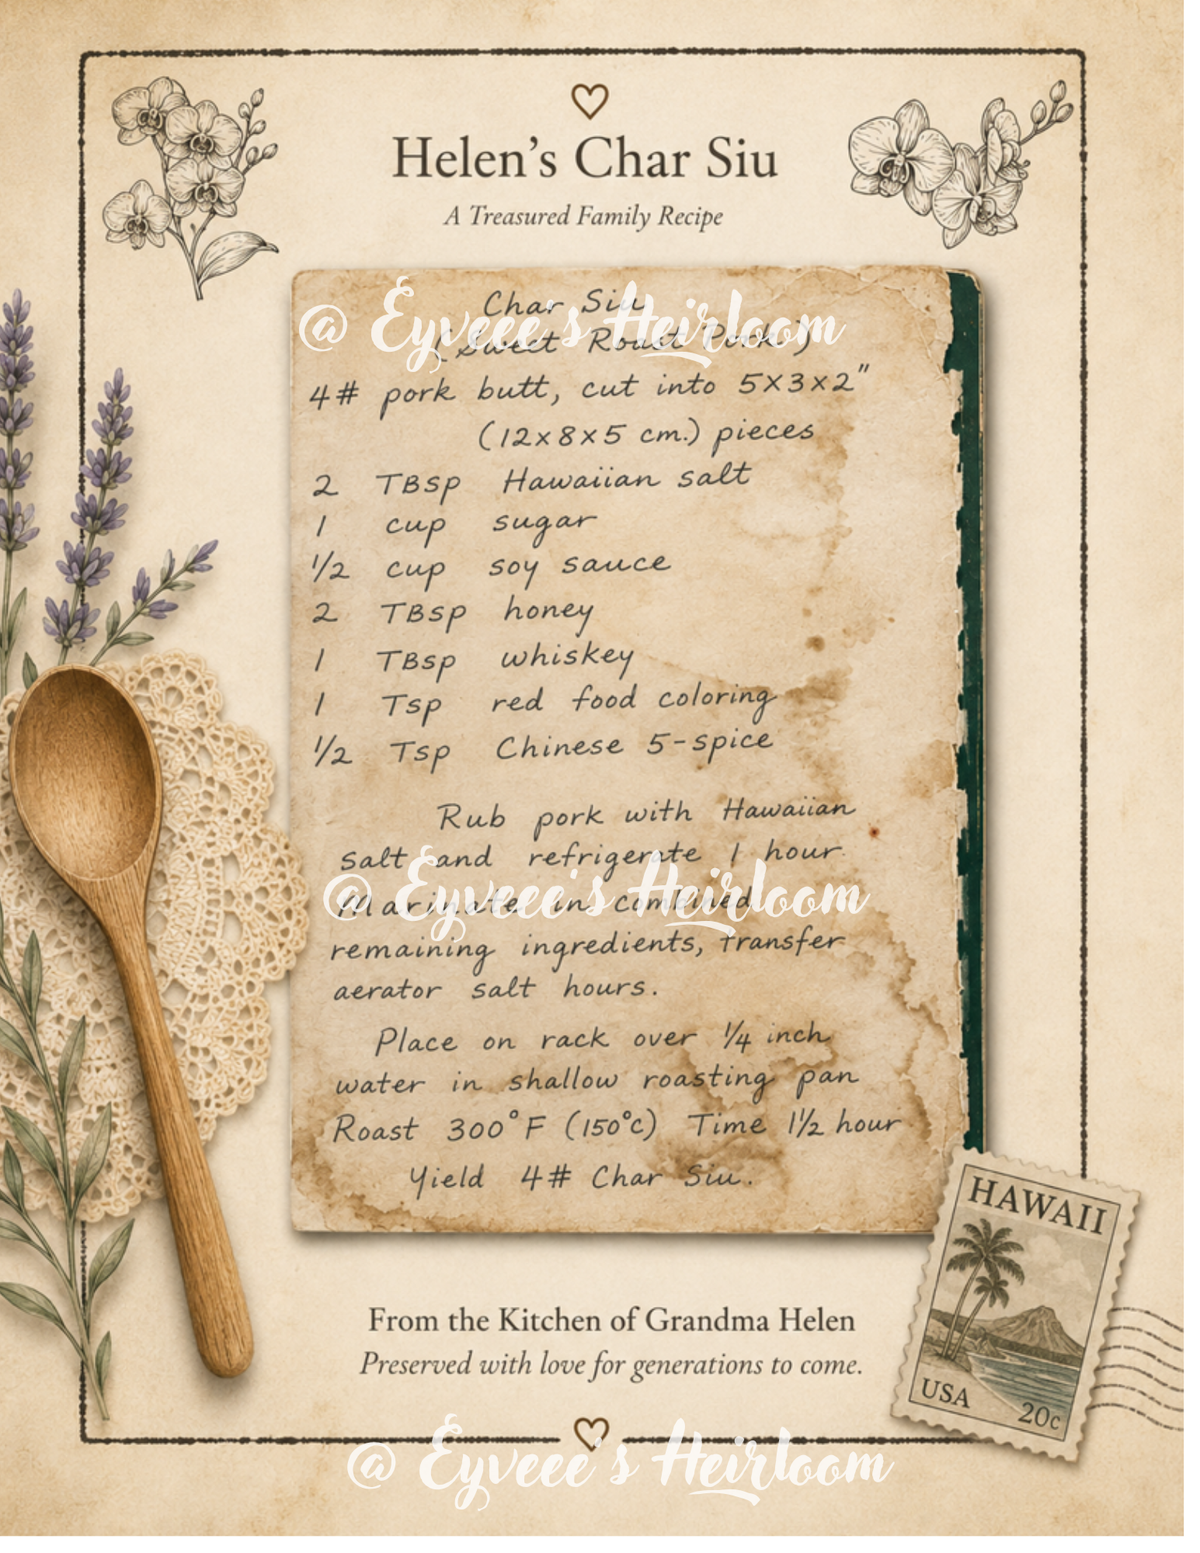 Helen's Char Siu
A Treasured Family Recipe
Char Siu
(Sweet Roast Pork)
@ Eyveee's Heirloom
4# pork butt, cut into 5x3x2"
(12x8x5 cm.) pieces
2 TBsp Hawaiian salt
1 cup sugar
1/2 cup soy sauce
2 TBsp honey
1 TBsp whiskey
1 Tsp red food coloring
1/2 Tsp Chinese 5-spice
Rub pork with Hawaiian
salt and refrigerate 1 hour.
Marinate in combined
@ Eyveee's Heirloom
remaining ingredients, transfer
aerator salt hours.
Place on rack over 1/4 inch
water in shallow roasting pan
Roast 300°F (150°c) Time 1 1/2 hour
Yield 4# Char Siu.
HAWAII
USA 20c
From the Kitchen of Grandma Helen
Preserved with love for generations to come.
@ Eyveee's Heirloom